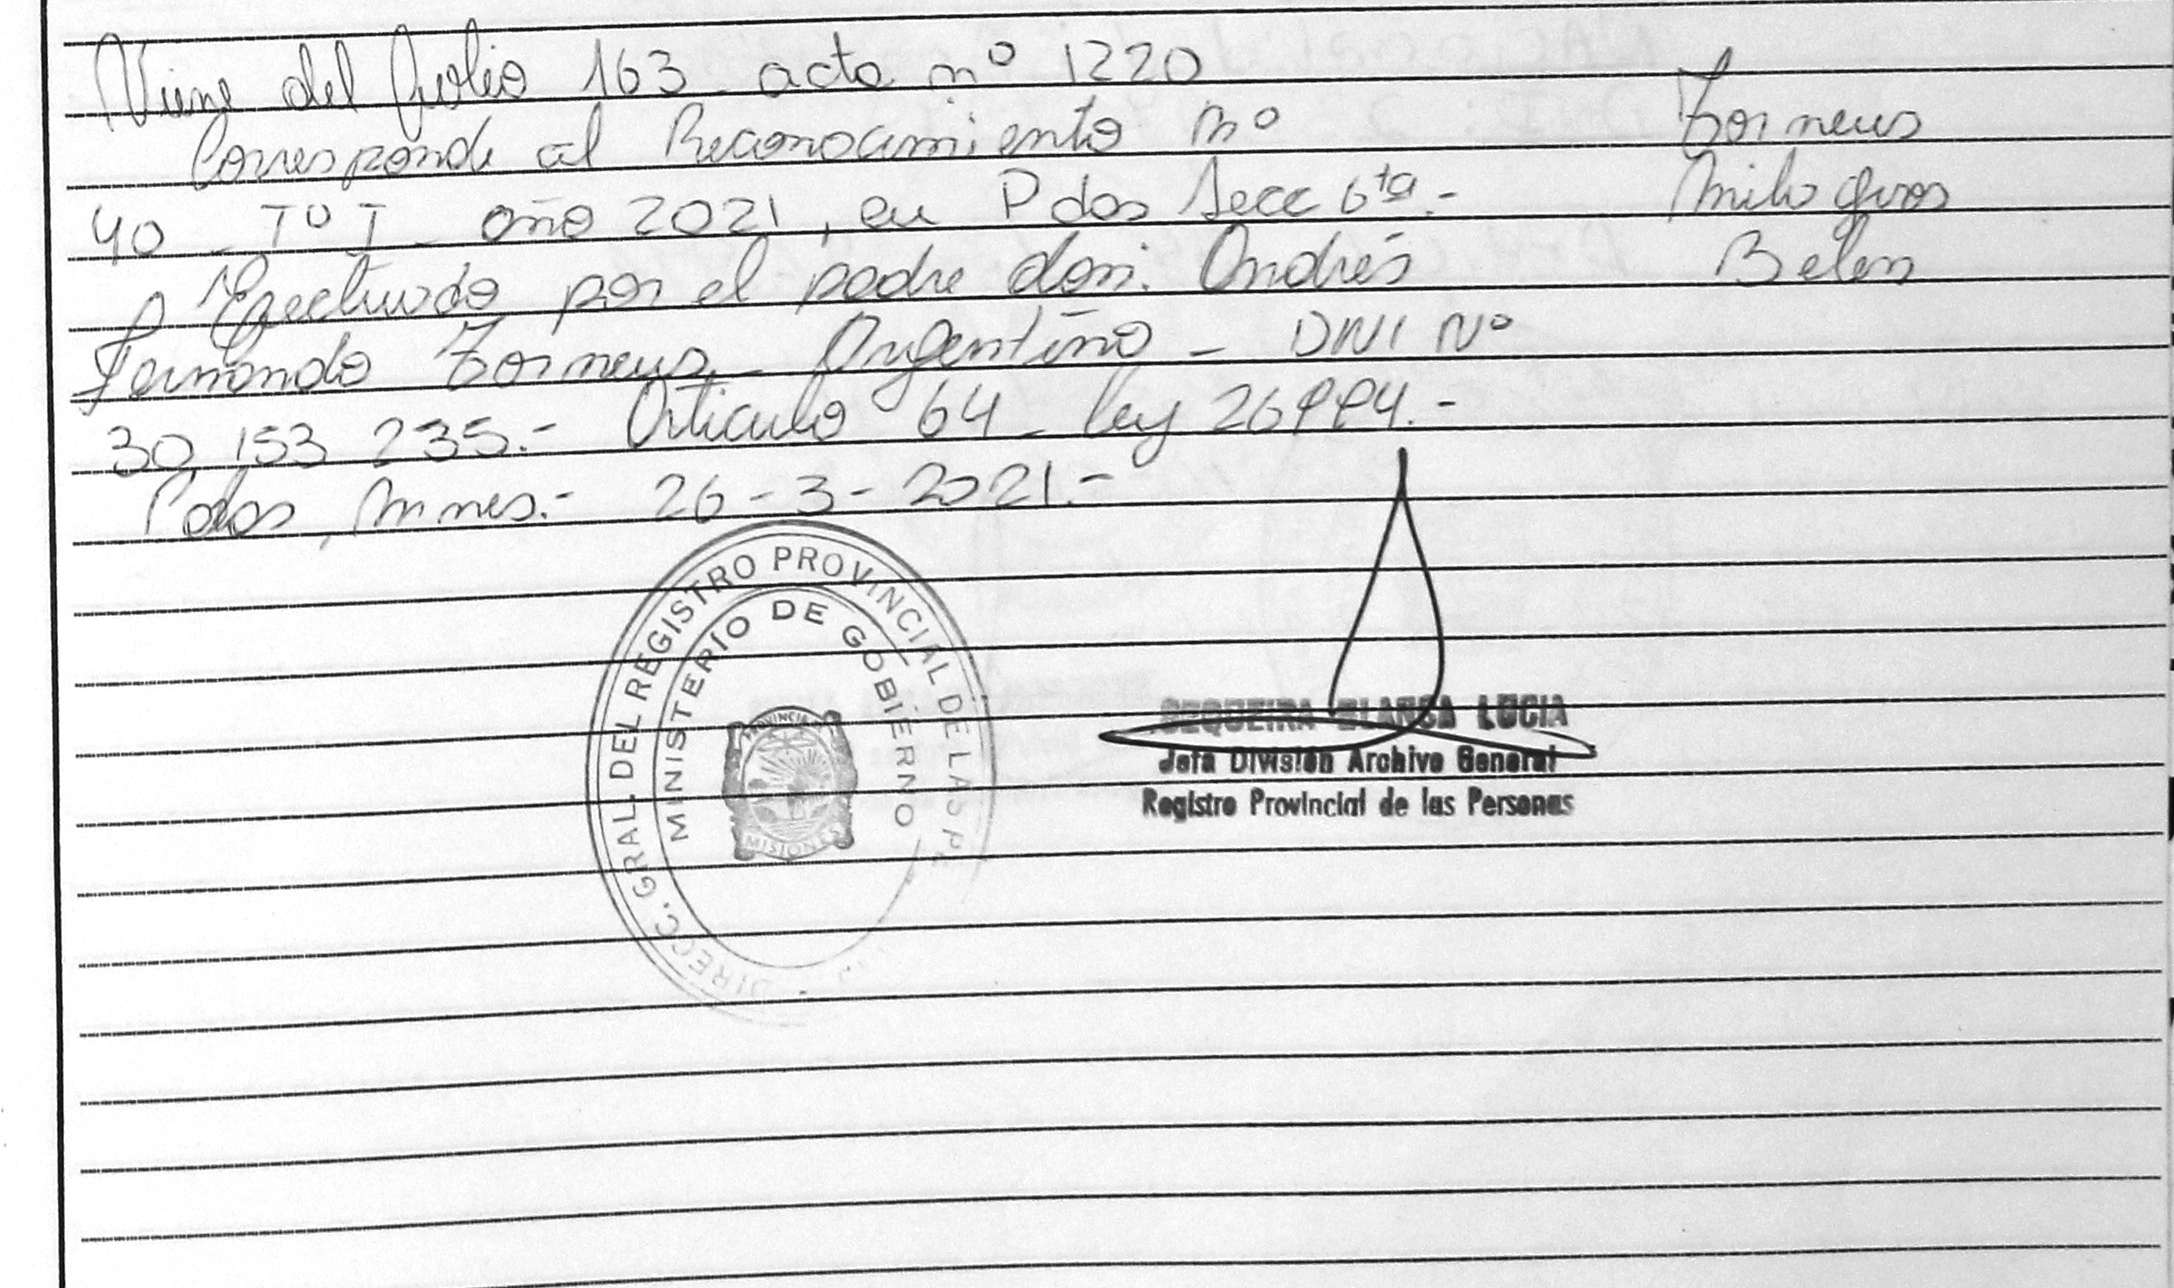 Viene del folio 163 acta nº 1220
Corresponde al Reconocimiento nº
40 - Tº I - año 2021, en Pdas Secc 6ta.-
Efectuado por el padre don: Andrés
Fernando Zorneus - Argentino - DNI Nº
30,153 235.- Articulo 64 - ley 26994.-
Pdas, Mnes.- 26-3-2021.-
Zorneus
Milagros
Belen
DIRECC. GRAL. DEL REGISTRO PROVINCIAL DE LAS PE
MINISTERIO DE GOBIERNO
PROVINCIA
MISIONES
SEQUEIRA BLANCA LUCIA
Jefa División Archivo General
Registro Provincial de las Personas